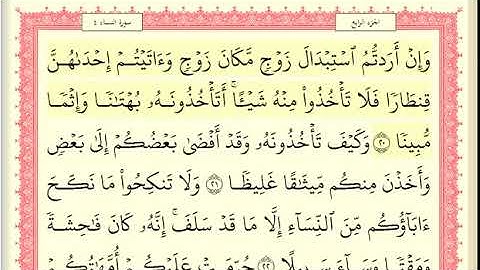 سورة النساء ٤
الجزء الرابع
وَإِنۡ أَرَدتُّمُ ٱسۡتِبۡدَالَ زَوۡجٖ مَّكَانَ زَوۡجٖ وَءَاتَيۡتُمۡ إِحۡدَىٰهُنَّ
قِنطَارٗا فَلَا تَأۡخُذُواْ مِنۡهُ شَيۡـًٔاۚ أَتَأۡخُذُونَهُۥ بُهۡتَٰنٗا وَإِثۡمٗا
مُّبِينٗا ٢٠ وَكَيۡفَ تَأۡخُذُونَهُۥ وَقَدۡ أَفۡضَىٰ بَعۡضُكُمۡ إِلَىٰ بَعۡضٖ
وَأَخَذۡنَ مِنكُم مِّيثَٰقًا غَلِيظٗا ٢١ وَلَا تَنكِحُواْ مَا نَكَحَ
ءَابَآؤُكُم مِّنَ ٱلنِّسَآءِ إِلَّا مَا قَدۡ سَلَفَۚ إِنَّهُۥ كَانَ فَٰحِشَةٗ
وَمَقۡتٗا وَسَآءَ سَبِيلًا ٢٢ حُرِّمَتۡ عَلَيۡكُمۡ أُمَّهَٰتُكُمۡ